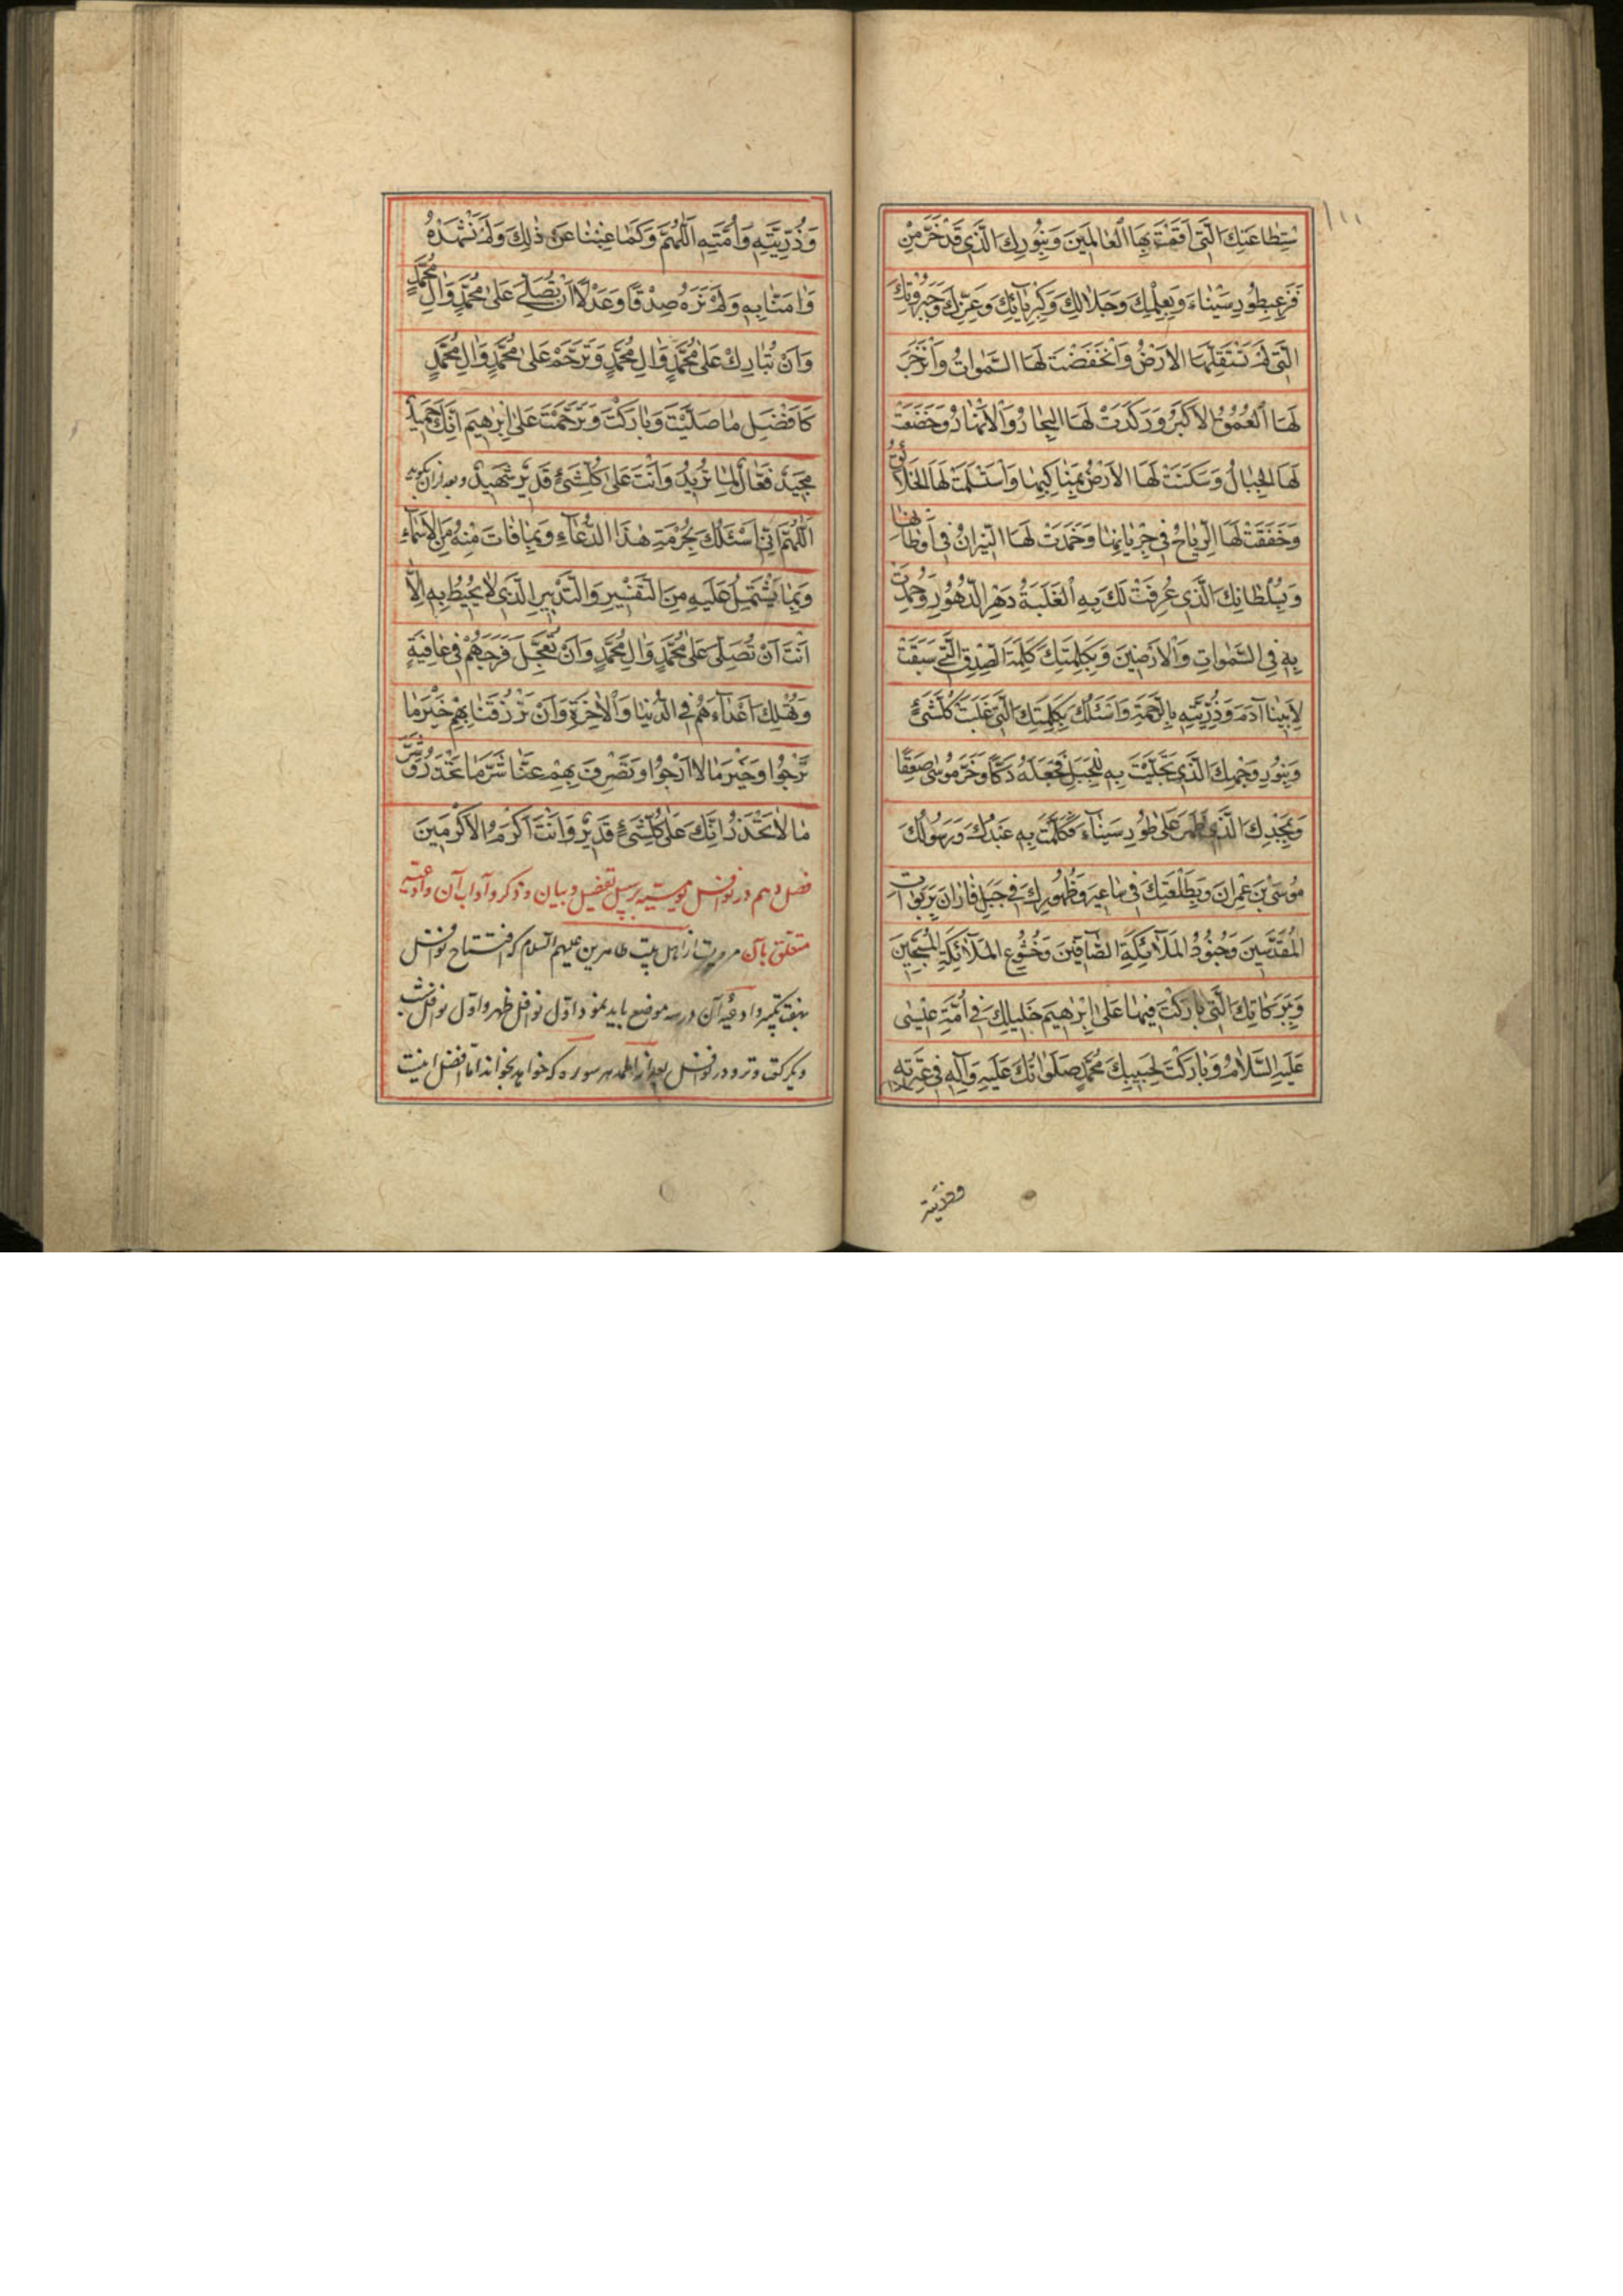 سْتِطاعَتِكَ الَّتي اَقَمْتَ بِهَا الْعالَمينَ وَبِنُورِكَ الَّذي قَدْ خَرَّ مِنْ
فَزَعِهِ طُورِ سَيْناءَ وَبِعِلْمِكَ وَجَلالِكَ وَكِبْرِيآئِكَ وَعِزَّتِكَ وَجَبَرُوتِكَ
الَّتي لَمْ تَسْتَقِلَّهَا الاَرْضُ وَانْخَفَضَتْ لَهَا السَّمٰواتُ وَانْزَجَرَ
لَهَا الْعُمْقُ الاَكْبَرُ وَرَكَدَتْ لَهَا الْبِحارُ وَالاَنْهارُ وَخَضَعَتْ
لَهَا الْجِبالُ وَسَكَنَتْ لَهَا الاَرْضُ بِمَناكِبِها وَاسْتَسْلَمَتْ لَهَا الْخَلائِقُ
وَخَفَقَتْ لَهَا الرِّياحُ في جَرَيانِها وَخَمَدَتْ لَهَا النّيرانُ في اَوْطانِها
وَبِسُلْطانِكَ الَّذي عُرِفَتْ لَكَ بِهِ الْغَلَبَةُ دَهْرَ الدُّهُورِ وَحُمِدْتَ
بِهِ فِي السَّمٰواتِ وَالاَرَضينَ وَبِكَلِمَتِكَ كَلِمَةَ الصِّدْقِ الَّتي سَبَقَتْ
لاَبينا آدَمَ وَذُرِّيَّتِهِ بِالرَّحْمَةِ وَاَسْئَلُكَ بِكَلِمَتِكَ الَّتي غَلَبَتْ كُلَّشَيْءٍ
وَبِنُورِ وَجْهِكَ الَّذي تَجَلَّيْتَ بِهِ لِلْجَبَلِ فَجَعَلَهُ دَكًّا وَخَرَّ مُوسٰى صَعِقًا
وَبِمَجْدِكَ الَّذي ظَهَرَ عَلىٰ طُورِ سَيْناءَ فَكَلَّمْتَ بِهِ عَبْدَكَ وَرَسُولَكَ
مُوسَى بْنَ عِمْرانَ وَبِطَلْعَتِكَ في ساعيرَ وَظُهُورِكَ في جَبَلِ فارانَ بِرَبَواتِ
الْمُقَدَّسينَ وَجُنُودِ الْمَلآئِكَةِ الصّآفّينَ وَخُشُوعِ الْمَلآئِكَةِ الْمُسَبِّحينَ
وَبِبَرَكاتِكَ الَّتي بارَكْتَ فيها عَلىٰ اِبْرٰهيمَ خَليلِكَ في اُمَّةِ عيسٰى
عَلَيْهِ السَّلامُ وَبارَكْتَ لِحَبيبِكَ مُحَمَّدٍ صَلَواتُكَ عَلَيْهِ وَآلِهِ في عِتْرَتِهِ
وَذُرِّيَّتِهِ وَاُمَّتِهِ اَللّٰهُمَّ وَكَما غِبْنا عَنْ ذٰلِكَ وَلَمْ نَشْهَدْهُ
وَامَنّا بِهِ وَلَمْ نَرَهُ صِدْقًا وَعَدْلاً اَنْ تُصَلِّيَ عَلىٰ مُحَمَّدٍ وَالِ مُحَمَّدٍ
وَاَنْ تُبارِكَ عَلىٰ مُحَمَّدٍ وَالِ مُحَمَّدٍ وَتَرَحَّمَ عَلىٰ مُحَمَّدٍ وَالِ مُحَمَّدٍ
كَاَفْضَلِ ما صَلَّيْتَ وَبارَكْتَ وَتَرَحَّمْتَ عَلىٰ اِبْرٰهيمَ اِنَّكَ حَميدٌ
مَجيدٌ فَعّالٌ لِما تُريدُ وَاَنْتَ عَلىٰ كُلِّشَيْءٍ قَديرٌ شَهيدٌ وبعد ازان بگويد
اَللّٰهُمَّ اِنّي اَسْئَلُكَ بِحُرْمَةِ هٰذَا الدُّعآءِ وَبِما فاتَ مِنْهُ مِنَ الاَسْماءِ
وَبِما يَشْتَمِلُ عَلَيْهِ مِنَ التَّفْسيرِ وَالتَّدْبيرِ الَّذي لا يُحيطُ بِهِ اِلاّ
اَنْتَ اَنْ تُصَلِّيَ عَلىٰ مُحَمَّدٍ وَالِ مُحَمَّدٍ وَاَنْ تُعَجِّلَ فَرَجَهُمْ في عافِيَةٍ
وَتُهْلِكَ اَعْدآءَهُمْ فِي الدُّنْيا وَالاٰخِرَةِ وَاَنْ تَرْزُقَنا بِهِمْ خَيْرَ ما
نَرْجُوا وَخَيْرَ ما لا نَرْجُوا وَتَصْرِفَ بِهِمْ عَنّا شَرَّ ما نَحْذَرُ وَشَرَّ
ما لا نَحْذَرُ اِنَّكَ عَلىٰ كُلِّشَيْءٍ قَديرٌ وَاَنْتَ اَكْرَمُ الاَكْرَمينَ
فصل دهم در نوافل يوميه بر سبيل تفصيل و بيان و ذكر و آداب آن و ادعيه
متعلق بآن مرويست از اهل بيت طاهرين عليهم السلام كه افتتاح نوافل
بهفت تكبير وادعيهٔ آن در سه موضع بايد نمود اوّل نوافل ظهر واوّل نوافل شب
ويكركعت وتر ودر نوافل بعد از الحمد هر سوره كه خواهد بخواند امّا افضل اينست
وذريته